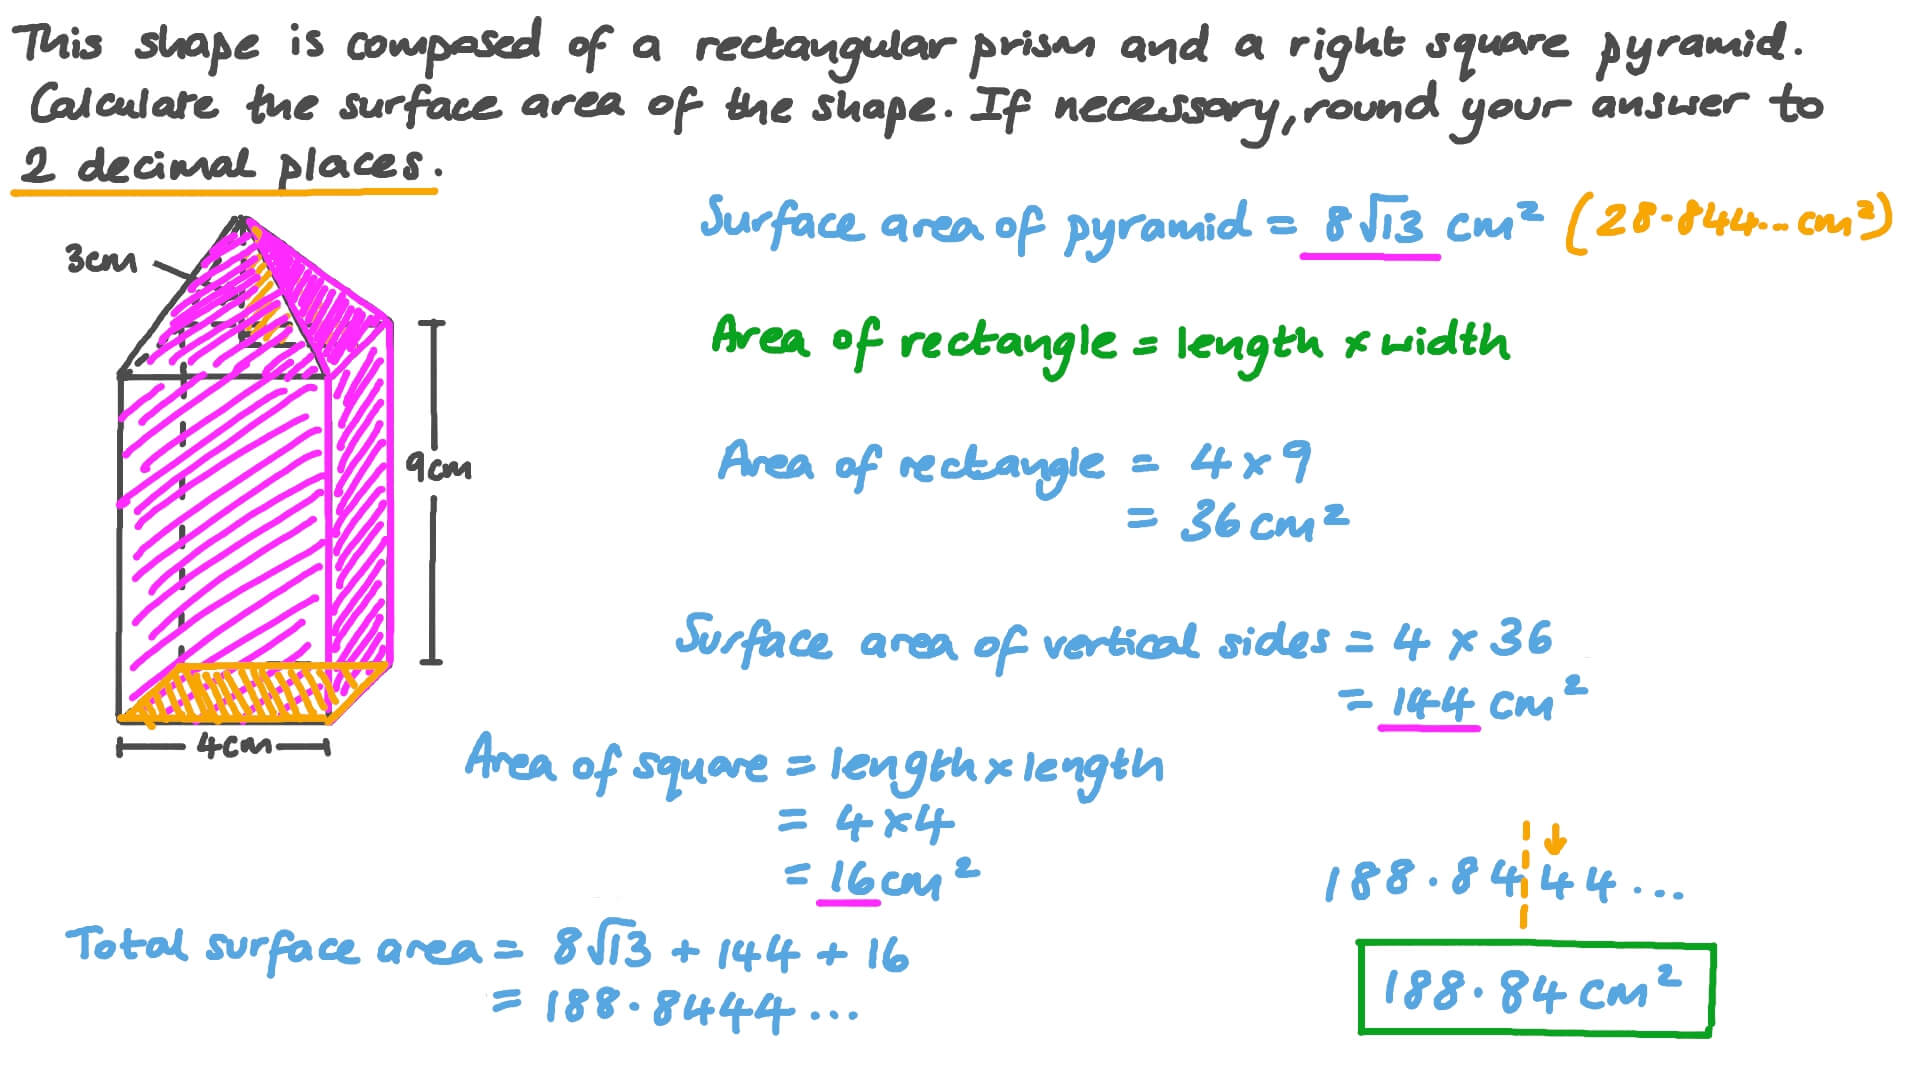 This shape is composed of a rectangular prism and a right square pyramid.
Calculate the surface area of the shape. If necessary, round your answer to
2 decimal places.
Surface area of pyramid = 8√13 cm² (28.844... cm²)
3cm
Area of rectangle = length × width
9cm
Area of rectangle = 4 × 9
= 36 cm²
Surface area of vertical sides = 4 × 36
= 144 cm²
4cm
Area of square = length × length
= 4 × 4
= 16 cm²
188.8444...
Total surface area = 8√13 + 144 + 16
= 188.8444...
188.84 cm²